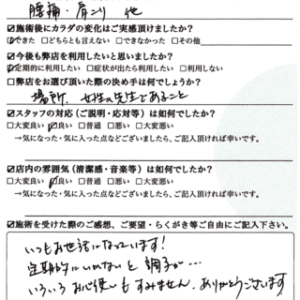 腰痛・肩こり 他
☑施術後にカラダの変化はご実感頂けましたか?
☑できた □どちらとも言えない □できなかった □その他
☑今後も弊店を利用したいと思いましたか?
☑定期的に利用したい □症状が出たら利用したい □利用しない
□弊店をお選び頂いた際の決め手は何でしょうか?
場所、女性の先生であること
☑スタッフの対応(ご説明・応対等)は如何でしたか?
□大変良い ☑良い □普通 □悪い □大変悪い
→気になった・気に入った点などございましたら、ご記入頂ければ幸いです。
☑店内の雰囲気(清潔感・音楽等)は如何でしたか?
□大変良い ☑良い □普通 □悪い □大変悪い
→気になった・気に入った点などございましたら、ご記入頂ければ幸いです。
☑施術を受けた際のご感想、ご要望・らくがき等ご自由にご記入下さい。
いつもお世話になっています!
定期的にいかないと調子が…
いろいろお心使いもすみません。ありがとうございます